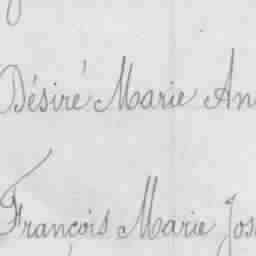 Désiré Marie An
François Marie Jos